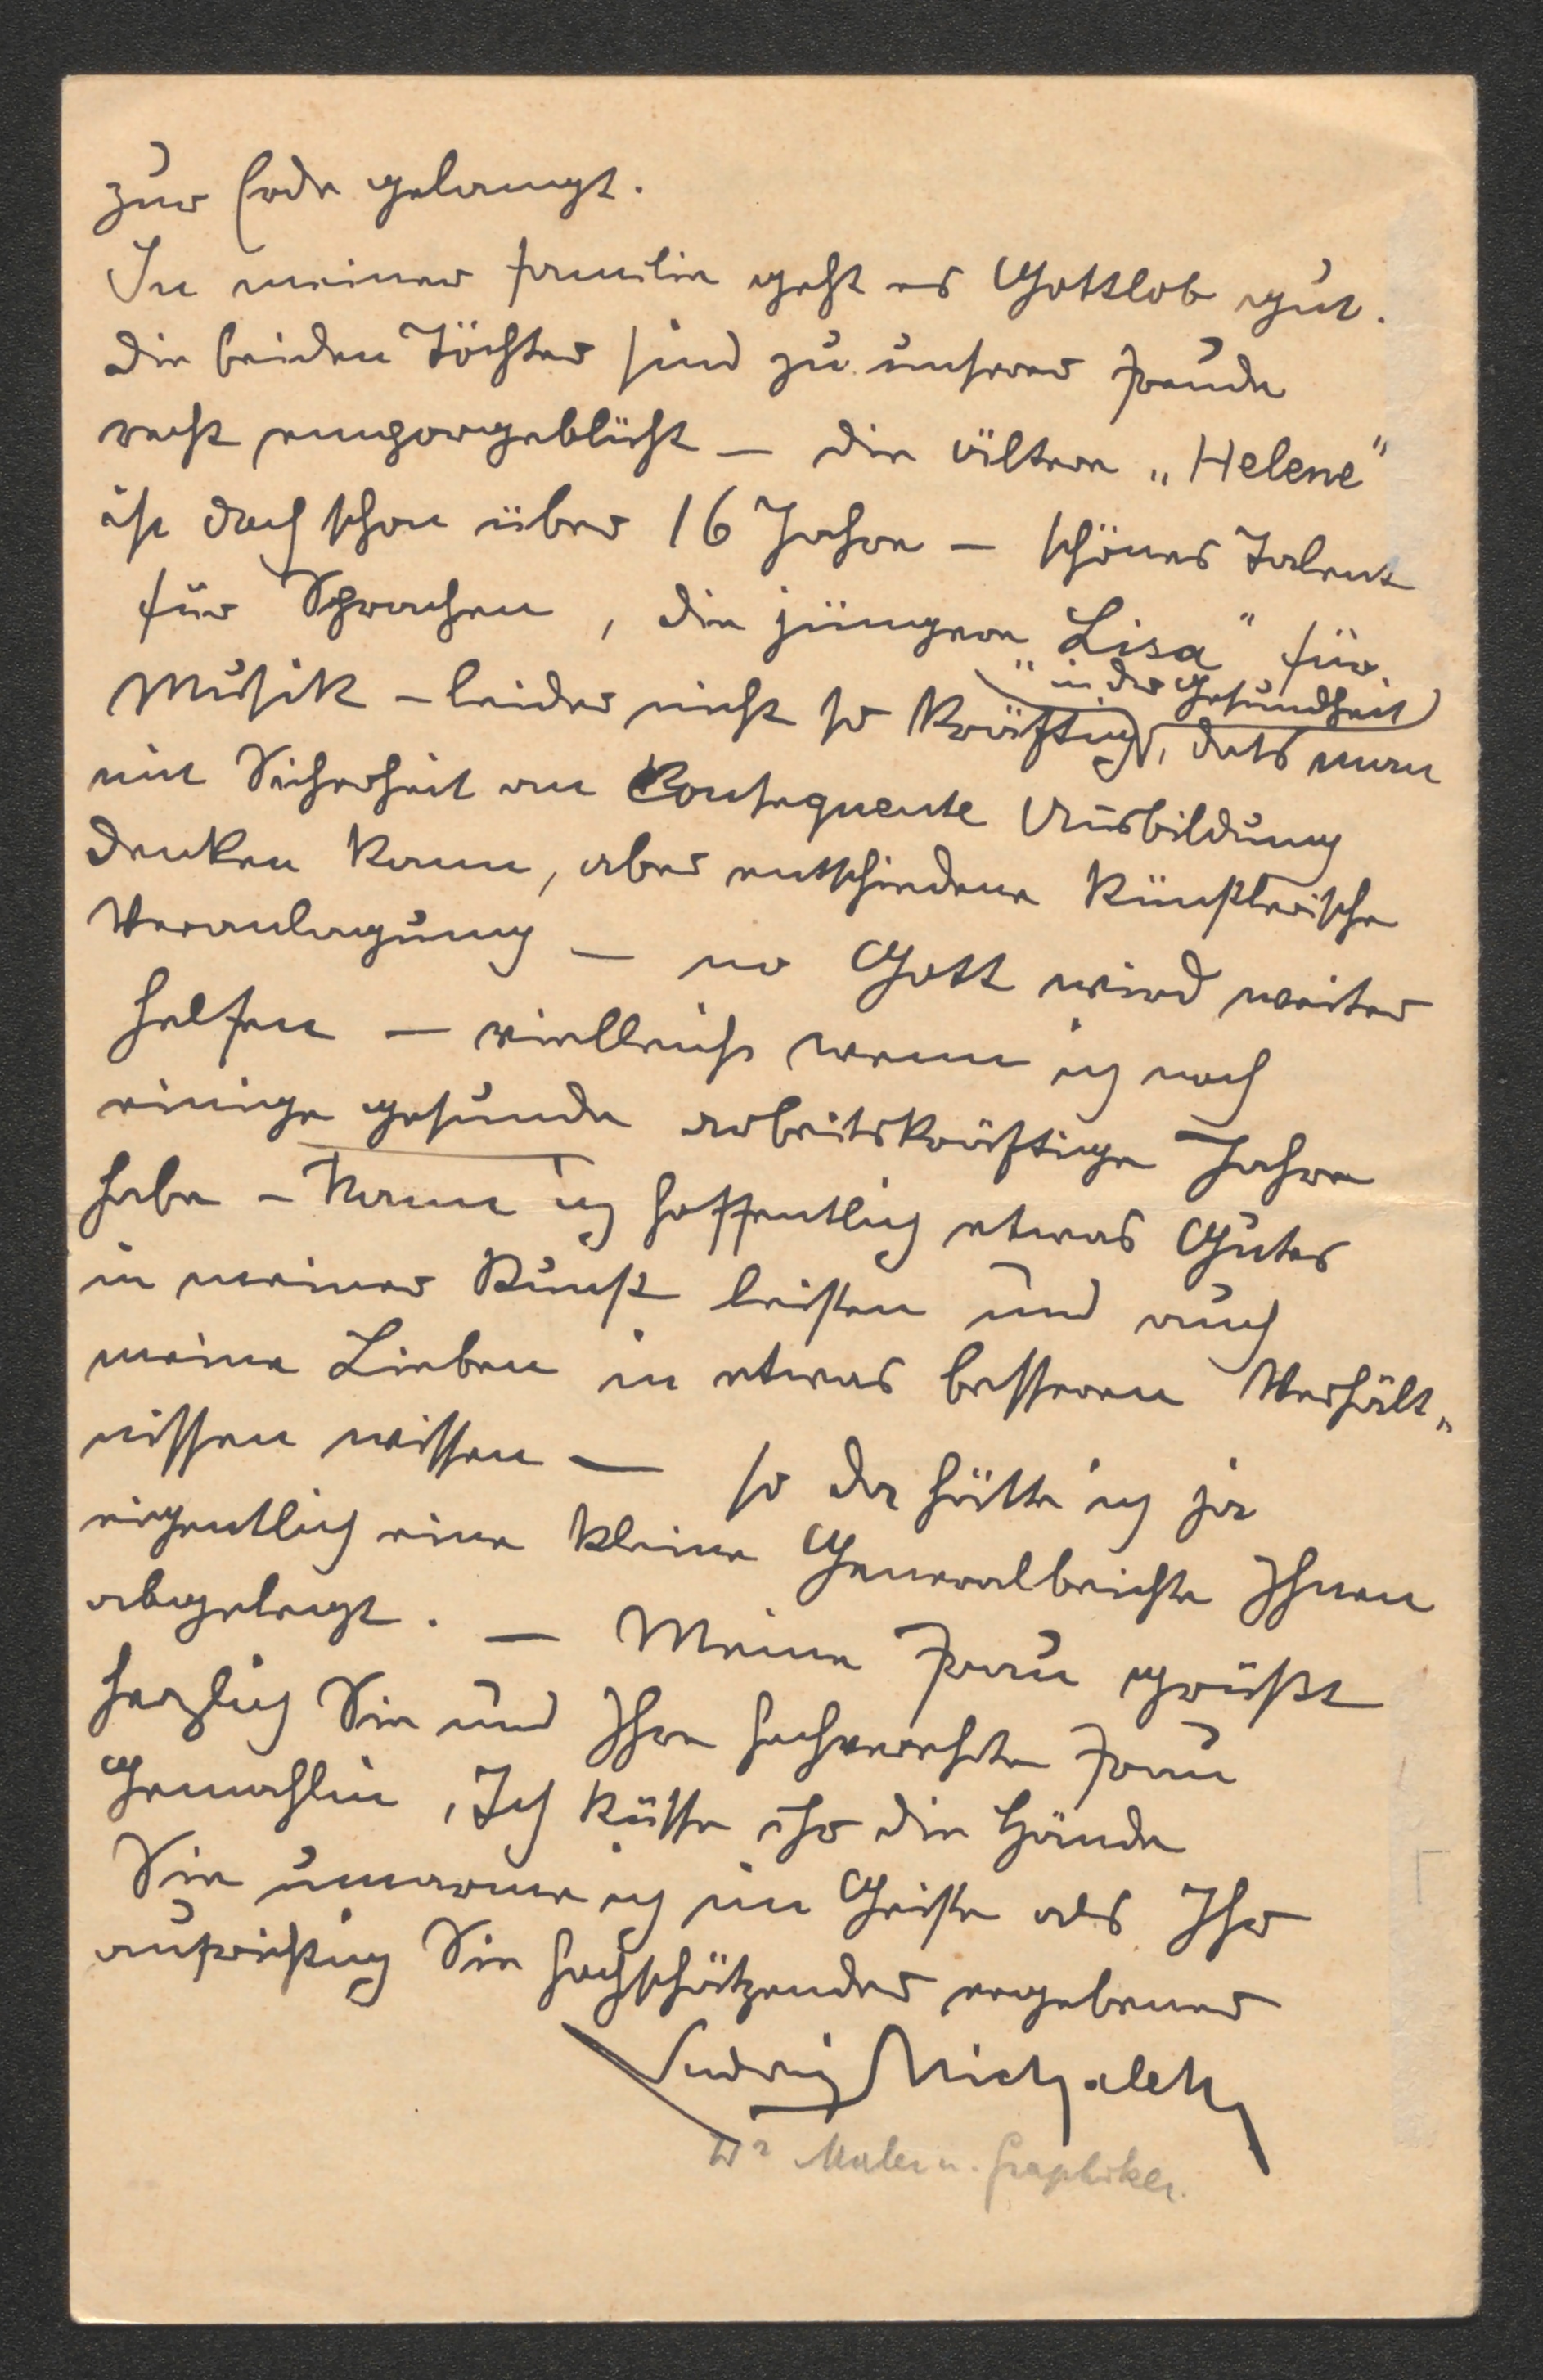 zur Erde gelangt.
In meiner Familie geht es Gottlob gut.
die beiden Töchter sind zu unserer Freude
recht emporgeblüht – die ältere „Helene"
ist doch schon über 16 Jahre – schönes Talent
für Sprachen, die jüngere „Lisa" für
Musik – leider nicht so kräftig (in der Gesundheit), dass man
mit Sicherheit an Consequente Ausbildung
denken kann, aber entschiedene künstlerische
Veranlagung – no Gott wird weiter
helfen – vielleicht wenn ich noch
einige gesunde arbeitskräftige Jahre
habe – kann ich hoffentlich etwas Gutes
in meiner Kunst leisten und auch
meine Lieben in etwas besseren Verhält„
nissen wissen – so da hätte ich ja
eigentlich eine kleine Generalbeichte Ihnen
abgelegt. – Meine Frau grüßt
herzlich Sie und Ihre hochverehrte Frau
Gemahlin, Ich küsse ihr die Hände
Sie umarme ich im Geiste als Ihr
aufrichtig Sie hochschätzender ergebener
Ludwig Michalek
Maler u. Graphiker.